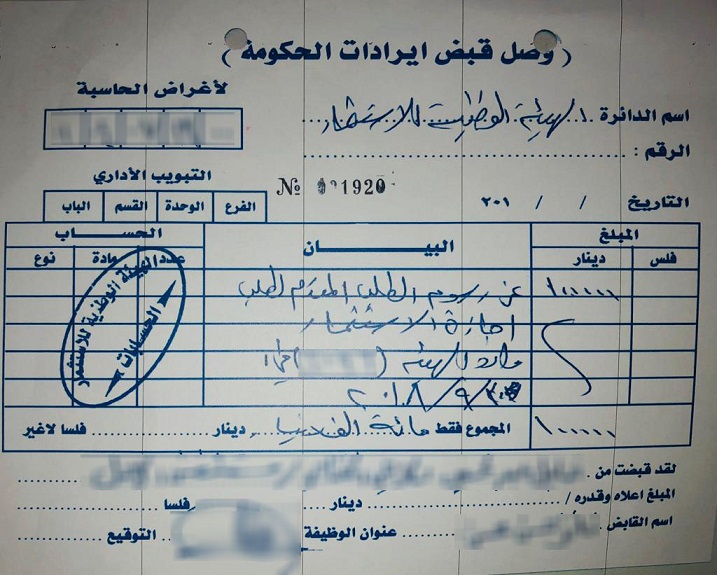 ( وصل قبض ايرادات الحكومة )
لأغراض الحاسبة
اسم الدائرة الهيئة الوطنية للاستثمار
الرقم :
التبويب الأداري
№ 001920
التاريخ / / ٢٠١
الفرع الوحدة القسم الباب
المبلغ البيـــــان الحســـاب
فلس دينار عدد مادة نوع
١٠٠٠٠٠ عن رسوم الطلب المقدم لطلب
اجازة الاستثمار
الهيئة
٢٠١٨/٩/
الهيئة الوطنية للاستثمار
الحسابات
١٠٠٠٠٠ المجموع فقط مائة الف دينار دينار فلسا لاغير
لقد قبضت من
المبلغ اعلاه وقدره / دينار فلسا
اسم القابض عنوان الوظيفة التوقيع